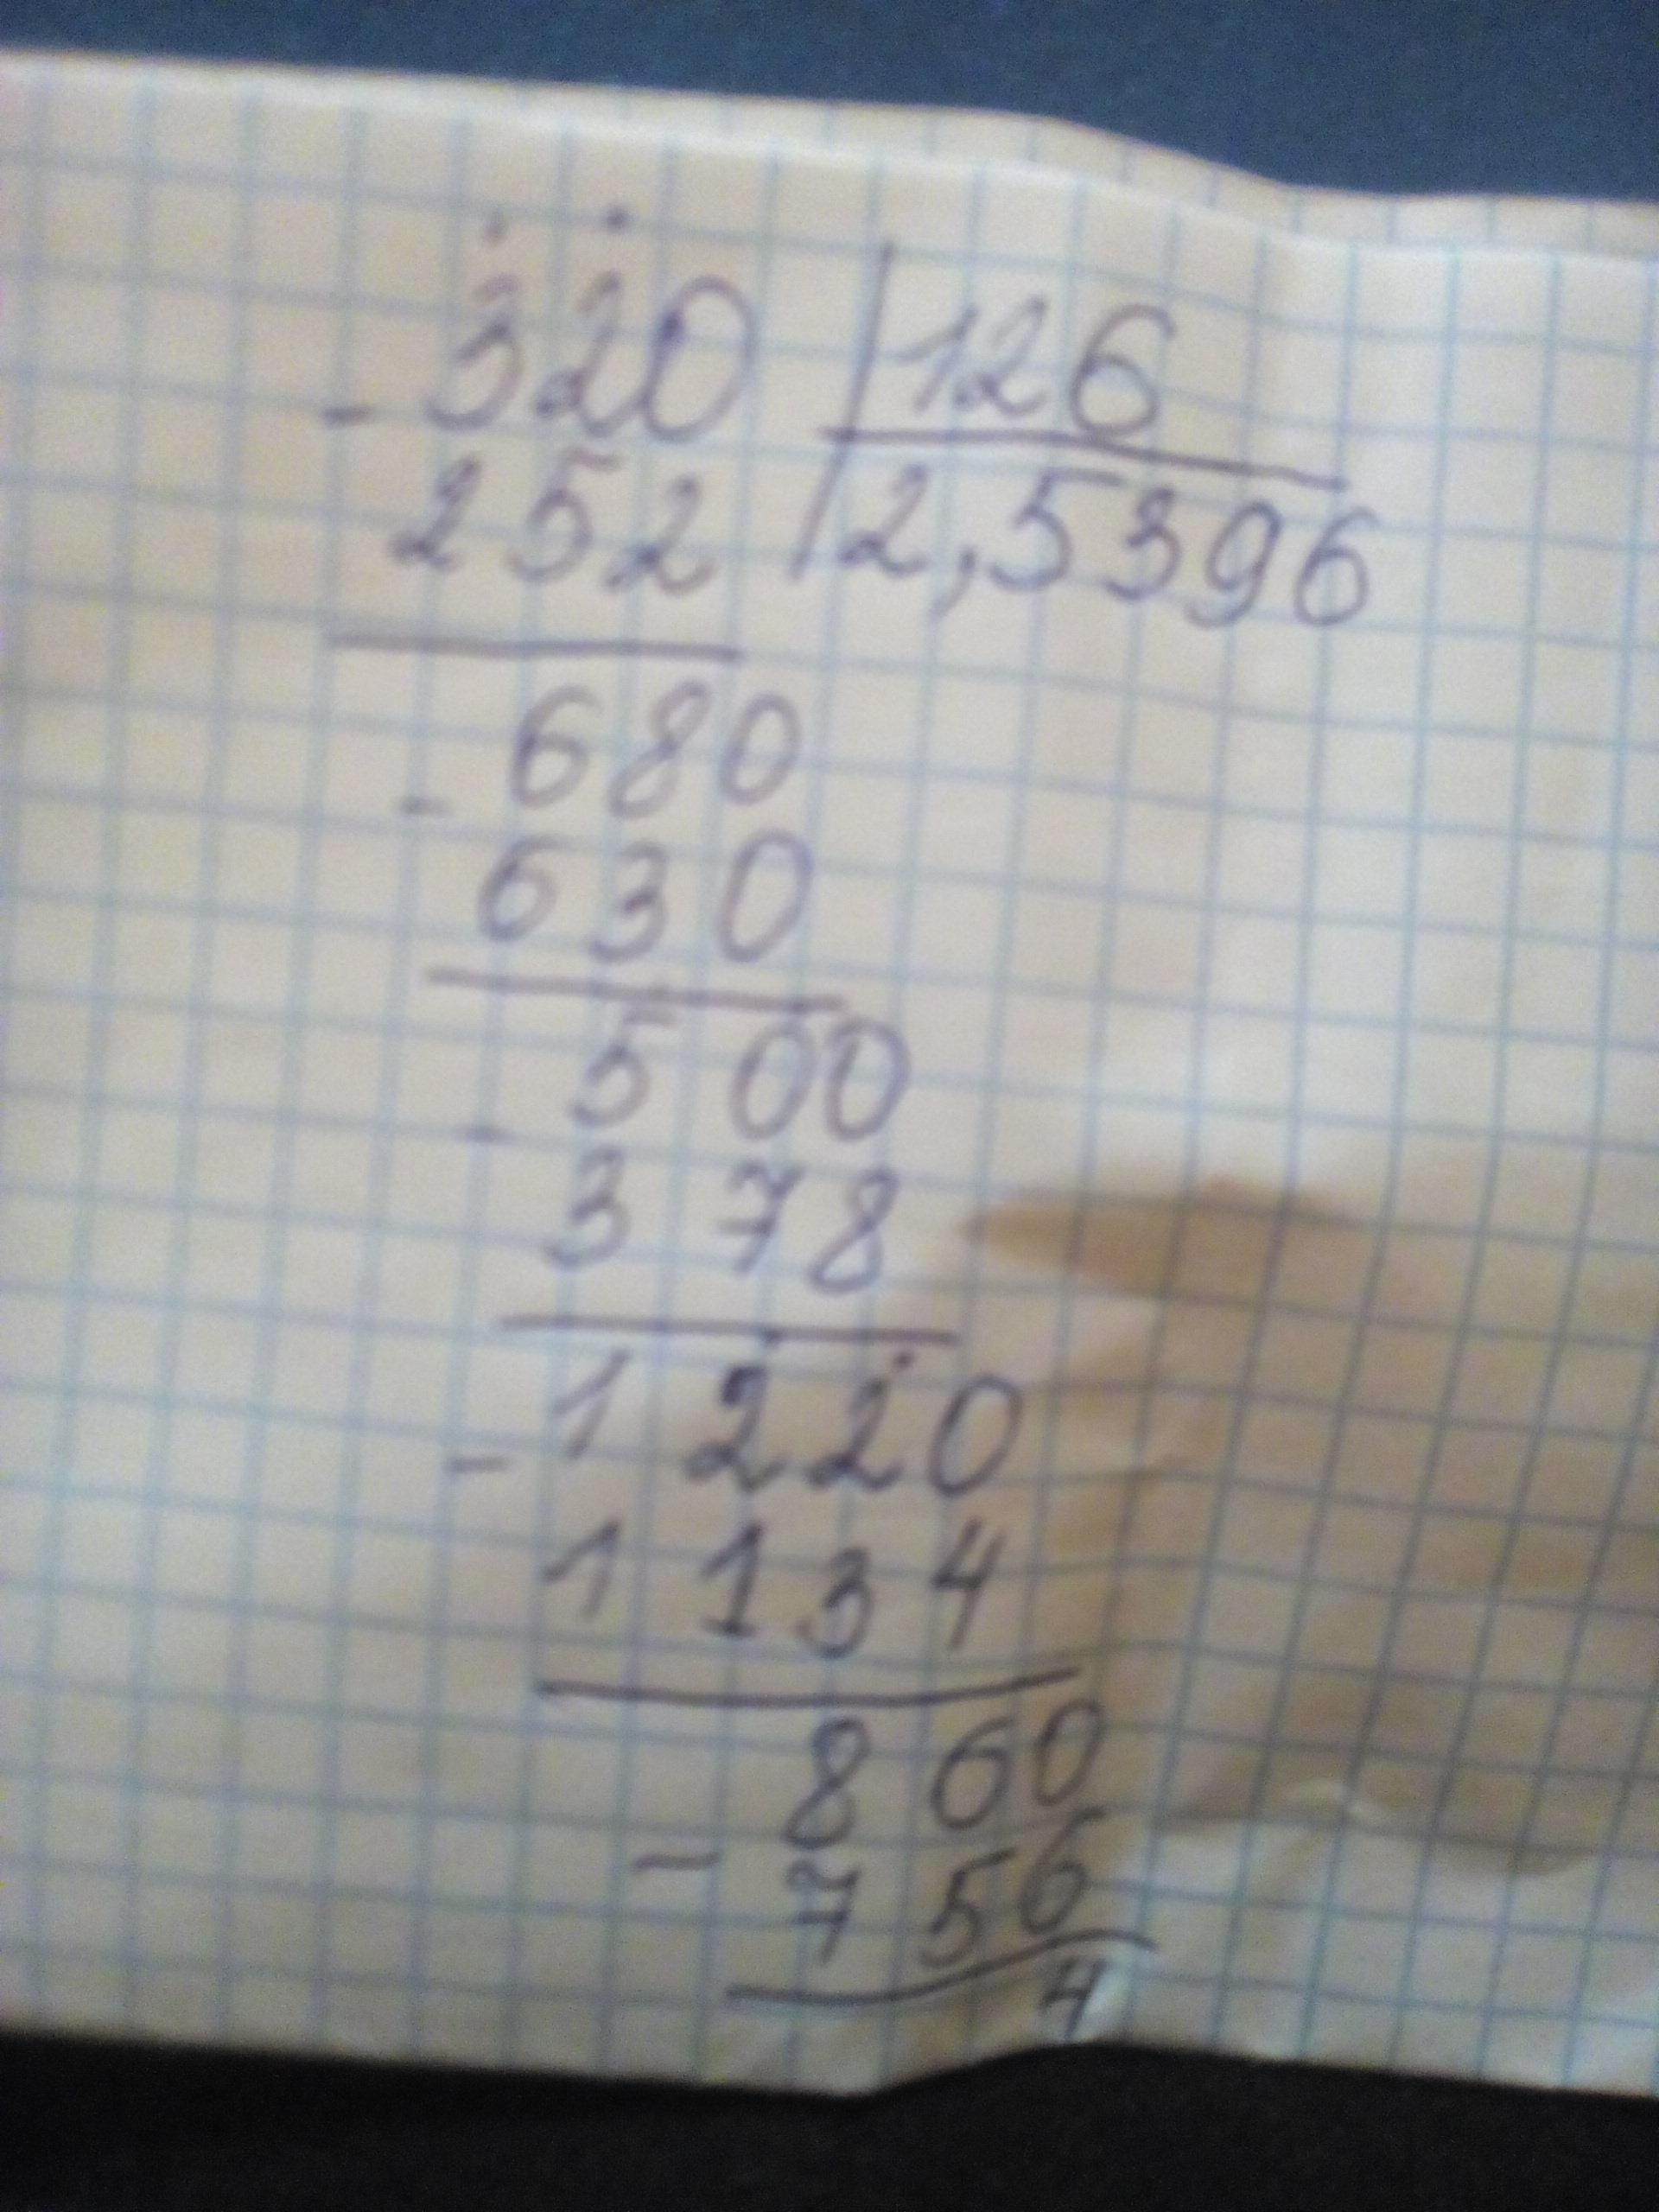 - 320 | 126
252 | 2,5396
- 680
630
- 500
378
- 1220
1134
- 860
756
4